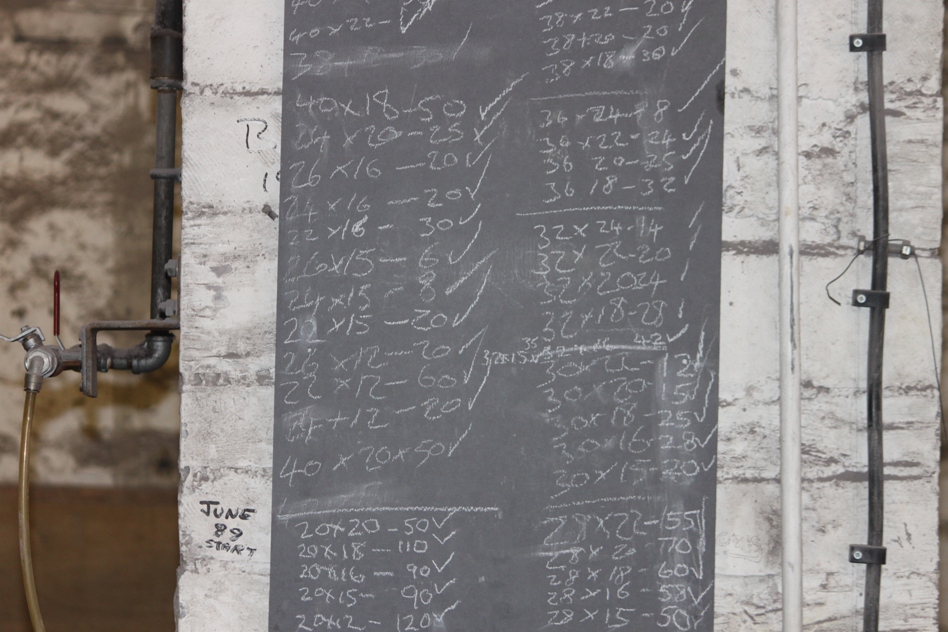 40 x 22 -
38 + 8 - 30
40 x 18 - 50
24 x 20 - 25
26 x 16 - 20
24 x 16 - 20
22 x 16 - 30
26 x 15 - 6
24 x 15 - 8
20 x 15 - 20
26 x 12 - 20
22 x 12 - 60
24 + 12 - 20
40 x 20 x 50
20 x 20 - 50
20 x 18 - 110
20 x 16 - 90
20 x 15 - 90
20 x 12 - 120
38 x 22 - 20
38 + 20 - 20
38 x 18 - 30
36 x 24 - 8
36 x 22 - 24
36 20 - 25
36 18 - 32
32 x 24 - 14
32 x 22 - 20
32 x 20 24
32 x 18 - 28
35
42
30 x 22 - 2
30 x 20 - 15
30 x 18 - 25
30 x 16 - 28
30 x 15 - 20
28 x 22 - 55
28 x 20 - 70
28 x 18 - 60
28 x 16 - 58
28 x 15 - 50
JUNE
89
START